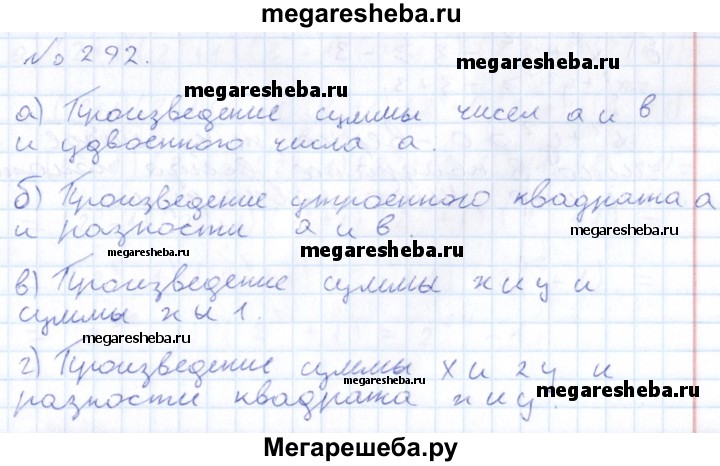 megaresheba.ru
№ 292.
megaresheba.ru
megaresheba.ru
а) Произведение суммы чисел а и в
и удвоенного числа а.
б) Произведение утроенного квадрата а
и разности а и в.
megaresheba.ru
megaresheba.ru
megaresheba.ru
в) Произведение суммы х и у и
суммы х и 1.
megaresheba.ru
г) Произведение суммы х и 2у и
megaresheba.ru
megaresheba.ru
разности квадрата х и у.
Мегарешеба.ру